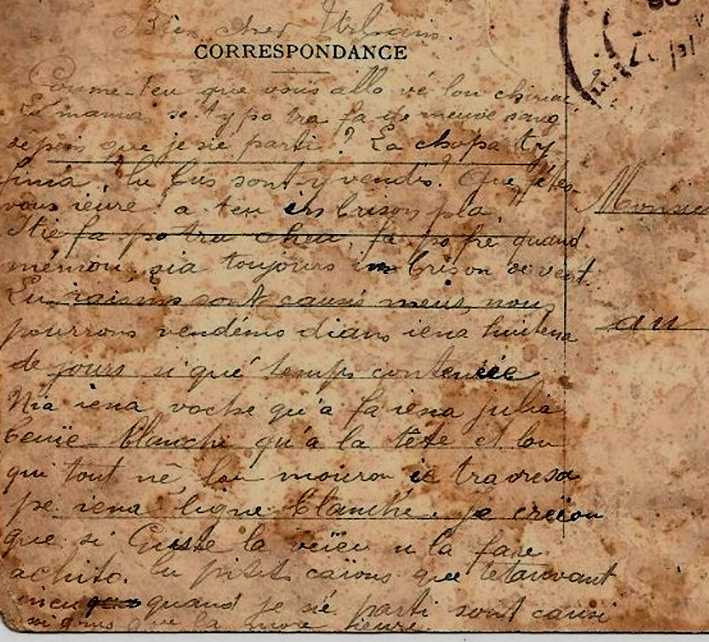 Bien cher Urbain.
CORRESPONDANCE
Comme-teu que vous allo vé lou chirac
La mama se typo tra fa de meuve sang
depeis que je sie parti? La chopa ty
fina lu bus sont-y vendis? Que fetes-
vous ieure a teu un brison pla,
Itie fa po tra chea, fa po fré quand
mémou, sia toujours in brison de vent.
Lu raisins sont causi meurs, nous
pourrons vendémo dians iena huitena
de jours si qué temps contenüe
Nia iena voche qu'a fa iena julia
benie blanche qu'a la tête et lou
qui tout né, lou mourou ie traoresa
pe iena ligne blanche. Je creiou
que si Guste la veïeu u la fare
achito. Lu pitits caïons que tetauvant
encu quand je sié parti sont causi
si grus que la more ieure.
Monsieu
au